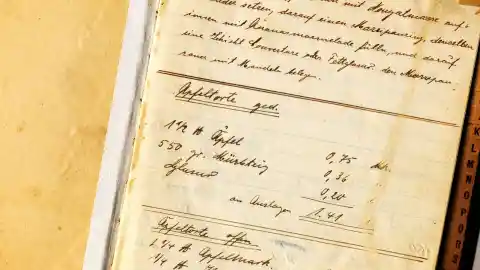 mit Nougatmasse auf-
setzen, darauf einen Marzipanring, denselben
innen mit Ananasmarmelade füllen, und darauf
eine Schicht Couverture oder Fettglasur. den Marzipan-
mit Mandeln belegen.
Apfeltorte ged.
1 1/2 ℔ Äpfel 0,75 Mk.
550 gr. Mürbteig 0,36 "
Glasur 0,20 "
an Auslagen 1.41 "
Apfeltorte offen
1/4 ℔ Apfelmark
1/4 ℔
K
L
M
N
O
P
Q
R
S